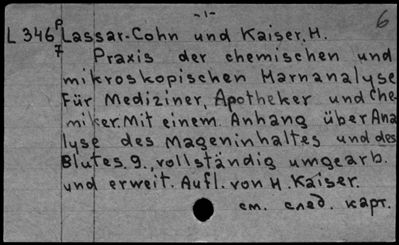 -1-
6
L 346 P/7 Lassar-Cohn und Kaiser, H.
Praxis der chemischen und
mikroskopischen Harnanalyse
Für Mediziner, Apotheker und Che-
miker. Mit einem Anhang über Ana
lyse des Mageninhaltes und des
Blutes. 9., vollständig umgearb.
und erweit. Aufl. von H. Kaiser.
см. след. карт.